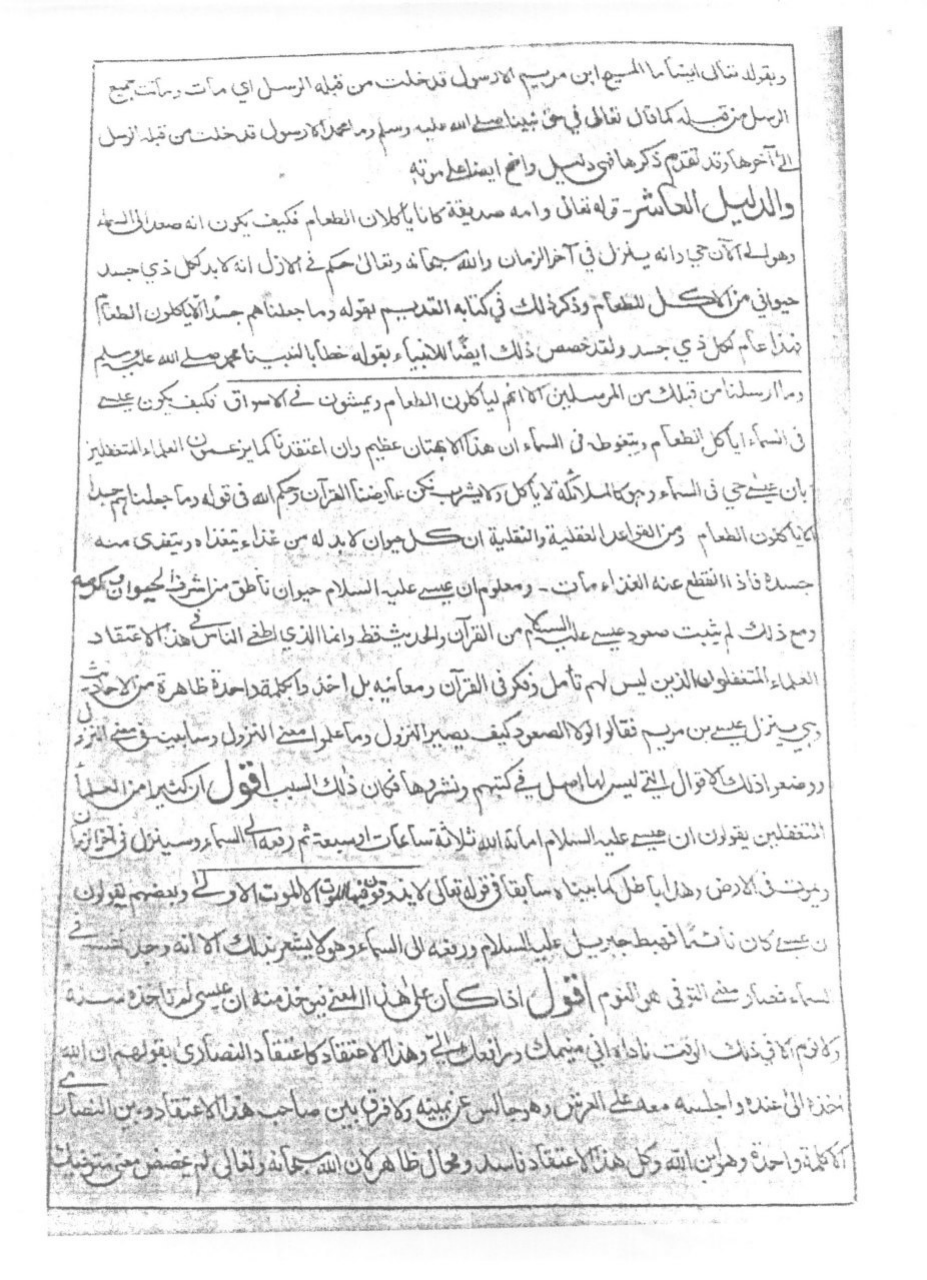 وبقوله تعالى ايضا ما المسيح ابن مريم الا رسول قد خلت من قبله الرسل اي مات وماتت جميع
الرسل من قبله كما قال تعالى في حق نبينا صلى الله عليه وسلم وما محمد الا رسول قد خلت من قبله الرسل
الى آخرها وقد تقدم ذكرها فهي دليل واضح ايضا على موته
والدليل العاشر - قوله تعالى وامه صديقة كانا يأكلان الطعام فكيف يكون انه صعد الى السماء
وهو الى الآن حي وانه ينزل في آخر الزمان والله سبحانه وتعالى حكم في الازل انه لابد لكل ذي جسد
حيواني من الاكل للطعام وذكر ذلك في كتابه القديم بقوله وما جعلناهم جسدًا لا يأكلون الطعام
فهذا عام لكل ذي جسد ولقد خصص ذلك ايضًا للانبياء بقوله خطابا لنبينا محمد صلى الله عليه وسلم
وما ارسلنا من قبلك من المرسلين الا انهم ليأكلون الطعام ويمشون في الاسواق فكيف يكون عيسى
في السماء ايأكل الطعام ويتغوطه في السماء ان هذا الا بهتان عظيم وان اعتقدنا كما يزعمون العلماء المتغفلين
بان عيسى حي في السماء وهو كالملائكة لا يأكل ولا يشرب نكن عارضنا القرآن وحكم الله في قوله وما جعلناهم جسدا
لا يأكلون الطعام ومن القواعد العقلية والنقلية ان كل حيوان لابد له من غذاء يتغذاه ويتغذى منه
جسده فاذا انقطع عنه الغذاء مات - ومعلوم ان عيسى عليه السلام حيوان ناطق من اشرف الحيوان وكرمه
ومع ذلك لم يثبت صعود عيسى عليه السلام من القرآن والحديث قط وانما الذي اطغى الناس في هذا الاعتقاد
العلماء المتغفلون الذين ليس لهم تأمل وفكر في القرآن ومعانيه بل اخذوا بكلمة واحدة ظاهرة من الاحاديث
وهي سينزل عيسى بن مريم فقالوا لولا الصعود كيف يصير النزول وما علموا معنى النزول وسابين في معنى النزول
ووضعوا ذلك الاقوال التي ليس لها اصل في كتبهم ونشروها فكان ذلك السبب اقول ان كثيرا من العلماء
المتغفلين يقولون ان عيسى عليه السلام اماته الله ثلاثة ساعات او سبعة ثم رفعه الى السماء وسينزل في آخر الزمان
ويموت في الارض وهذا باطل كما بيناه سابقا في قوله تعالى لا يذوقون فيها الموت الا الموتة الاولى وبعضهم يقولون
ان عيسى كان نائمًا فهبط جبريل عليه السلام ورفعه الى السماء وهو لا يشعر بذلك الا انه وجد نفسه في
السماء فصار معنى التوفي هو النوم اقول اذا كان على هذا المعنى نيوخذ منه ان عيسى لم تاخذه سنة
ولا نوم الا في ذلك الوقت ناداه اني منيمك ورافعك الي وهذا الاعتقاد كاعتقاد النصارى بقولهم ان الله
اخذه الى عنده واجلسه معه على العرش وهو جالس عن يمينه ولا فرق بين صاحب هذا الاعتقاد وبين النصارى
الا كلمة واحدة وهو ابن الله وكل هذا الاعتقاد فاسد ومحال ظاهر لان الله سبحانه وتعالى لم يخصص معنى متوفيك